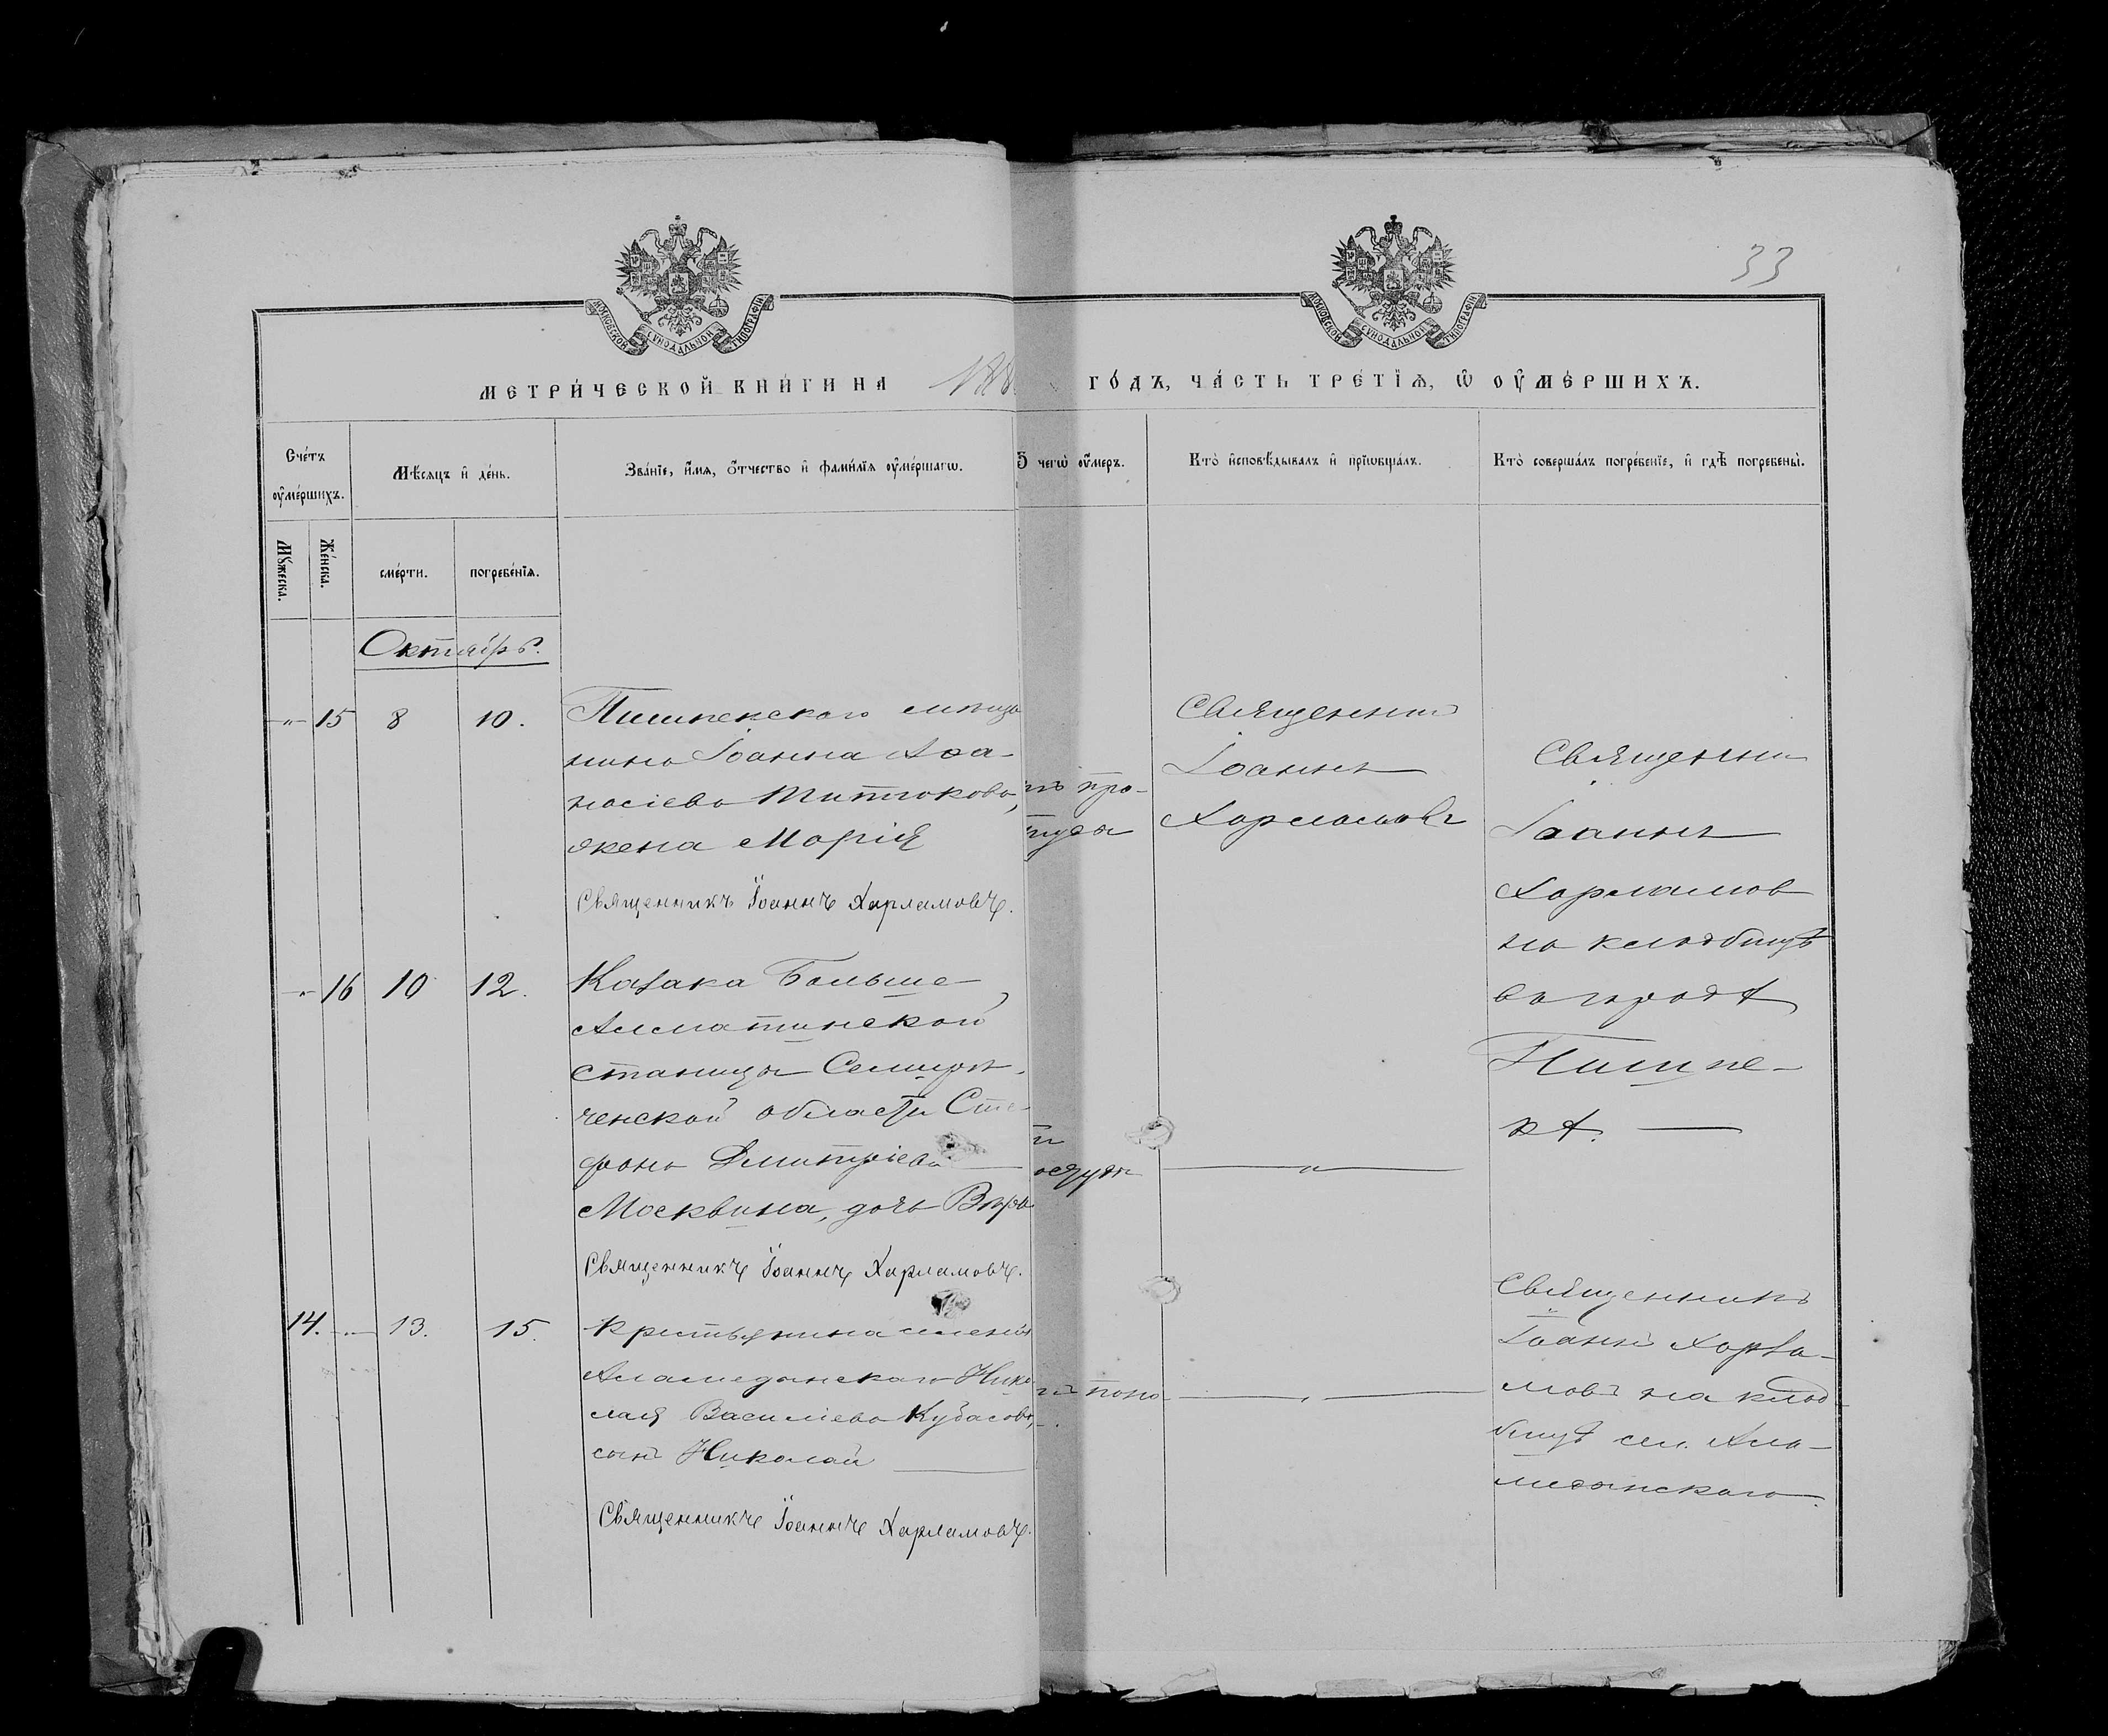 33
МОСКОВСКОЙ СУНОДАЛЬНОЙ ТИПОГРАФІИ
МОСКОВСКОЙ СУНОДАЛЬНОЙ ТИПОГРАФІИ
МЕТРИ́ЧЕСКОЙ КНИ́ГИ НА 188
ГО́ДЪ, ЧА́СТЬ ТРЕ́ТЇѦ, Ѡ ОУ҆МЕ́РШИХЪ.
Сче́тъ оу҆ме́ршихъ.
Мѣ́сяцъ и҆ де́нь.
Зва́нїе, и҆́мя, ѻ҆́тчество и҆ фамі́лїя оу҆ме́ршагѡ.
Ѿ чегѡ̀ оу҆́меръ.
Кто̀ и҆сповѣ́дывалъ и҆ прїѡбща́лъ.
Кто̀ соверша́лъ погребе́нїе, и҆ гдѣ̀ погребены̀.
Мꙋжеска.
Же́нска.
сме́рти.
погребе́нїя.
Октябрь.
-"- 15 8 10.
Пишпекскаго мѣща
нина Іоанна Аѳа-
насіева Титюкова,
жена Марія
Священникъ Іоаннъ Харламовъ.
про-
Священник
Іоаннъ
Харламовъ
Священни
Іоаннъ
Харламов
на кладбищѣ
въ городѣ
Пишпе-
кѣ. —
-"- 16 10 12.
Казака Больше-
Алматинской
станицы Семирѣ-
ченской области Сте-
фана Дмитріева
Москвина, дочь Вѣра
Священникъ Іоаннъ Харламовъ.
— " —
14. -"- 13. 15.
Крестьянина селенія
Аламединскаго Нико
лая Васильева Кубасова,
сынъ Николай —
Священникъ Іоаннъ Харламовъ.
поно-
— " —
Священникъ
Іоаннъ Харла-
мовъ на клад-
бищѣ сел. Ала-
мединскаго.